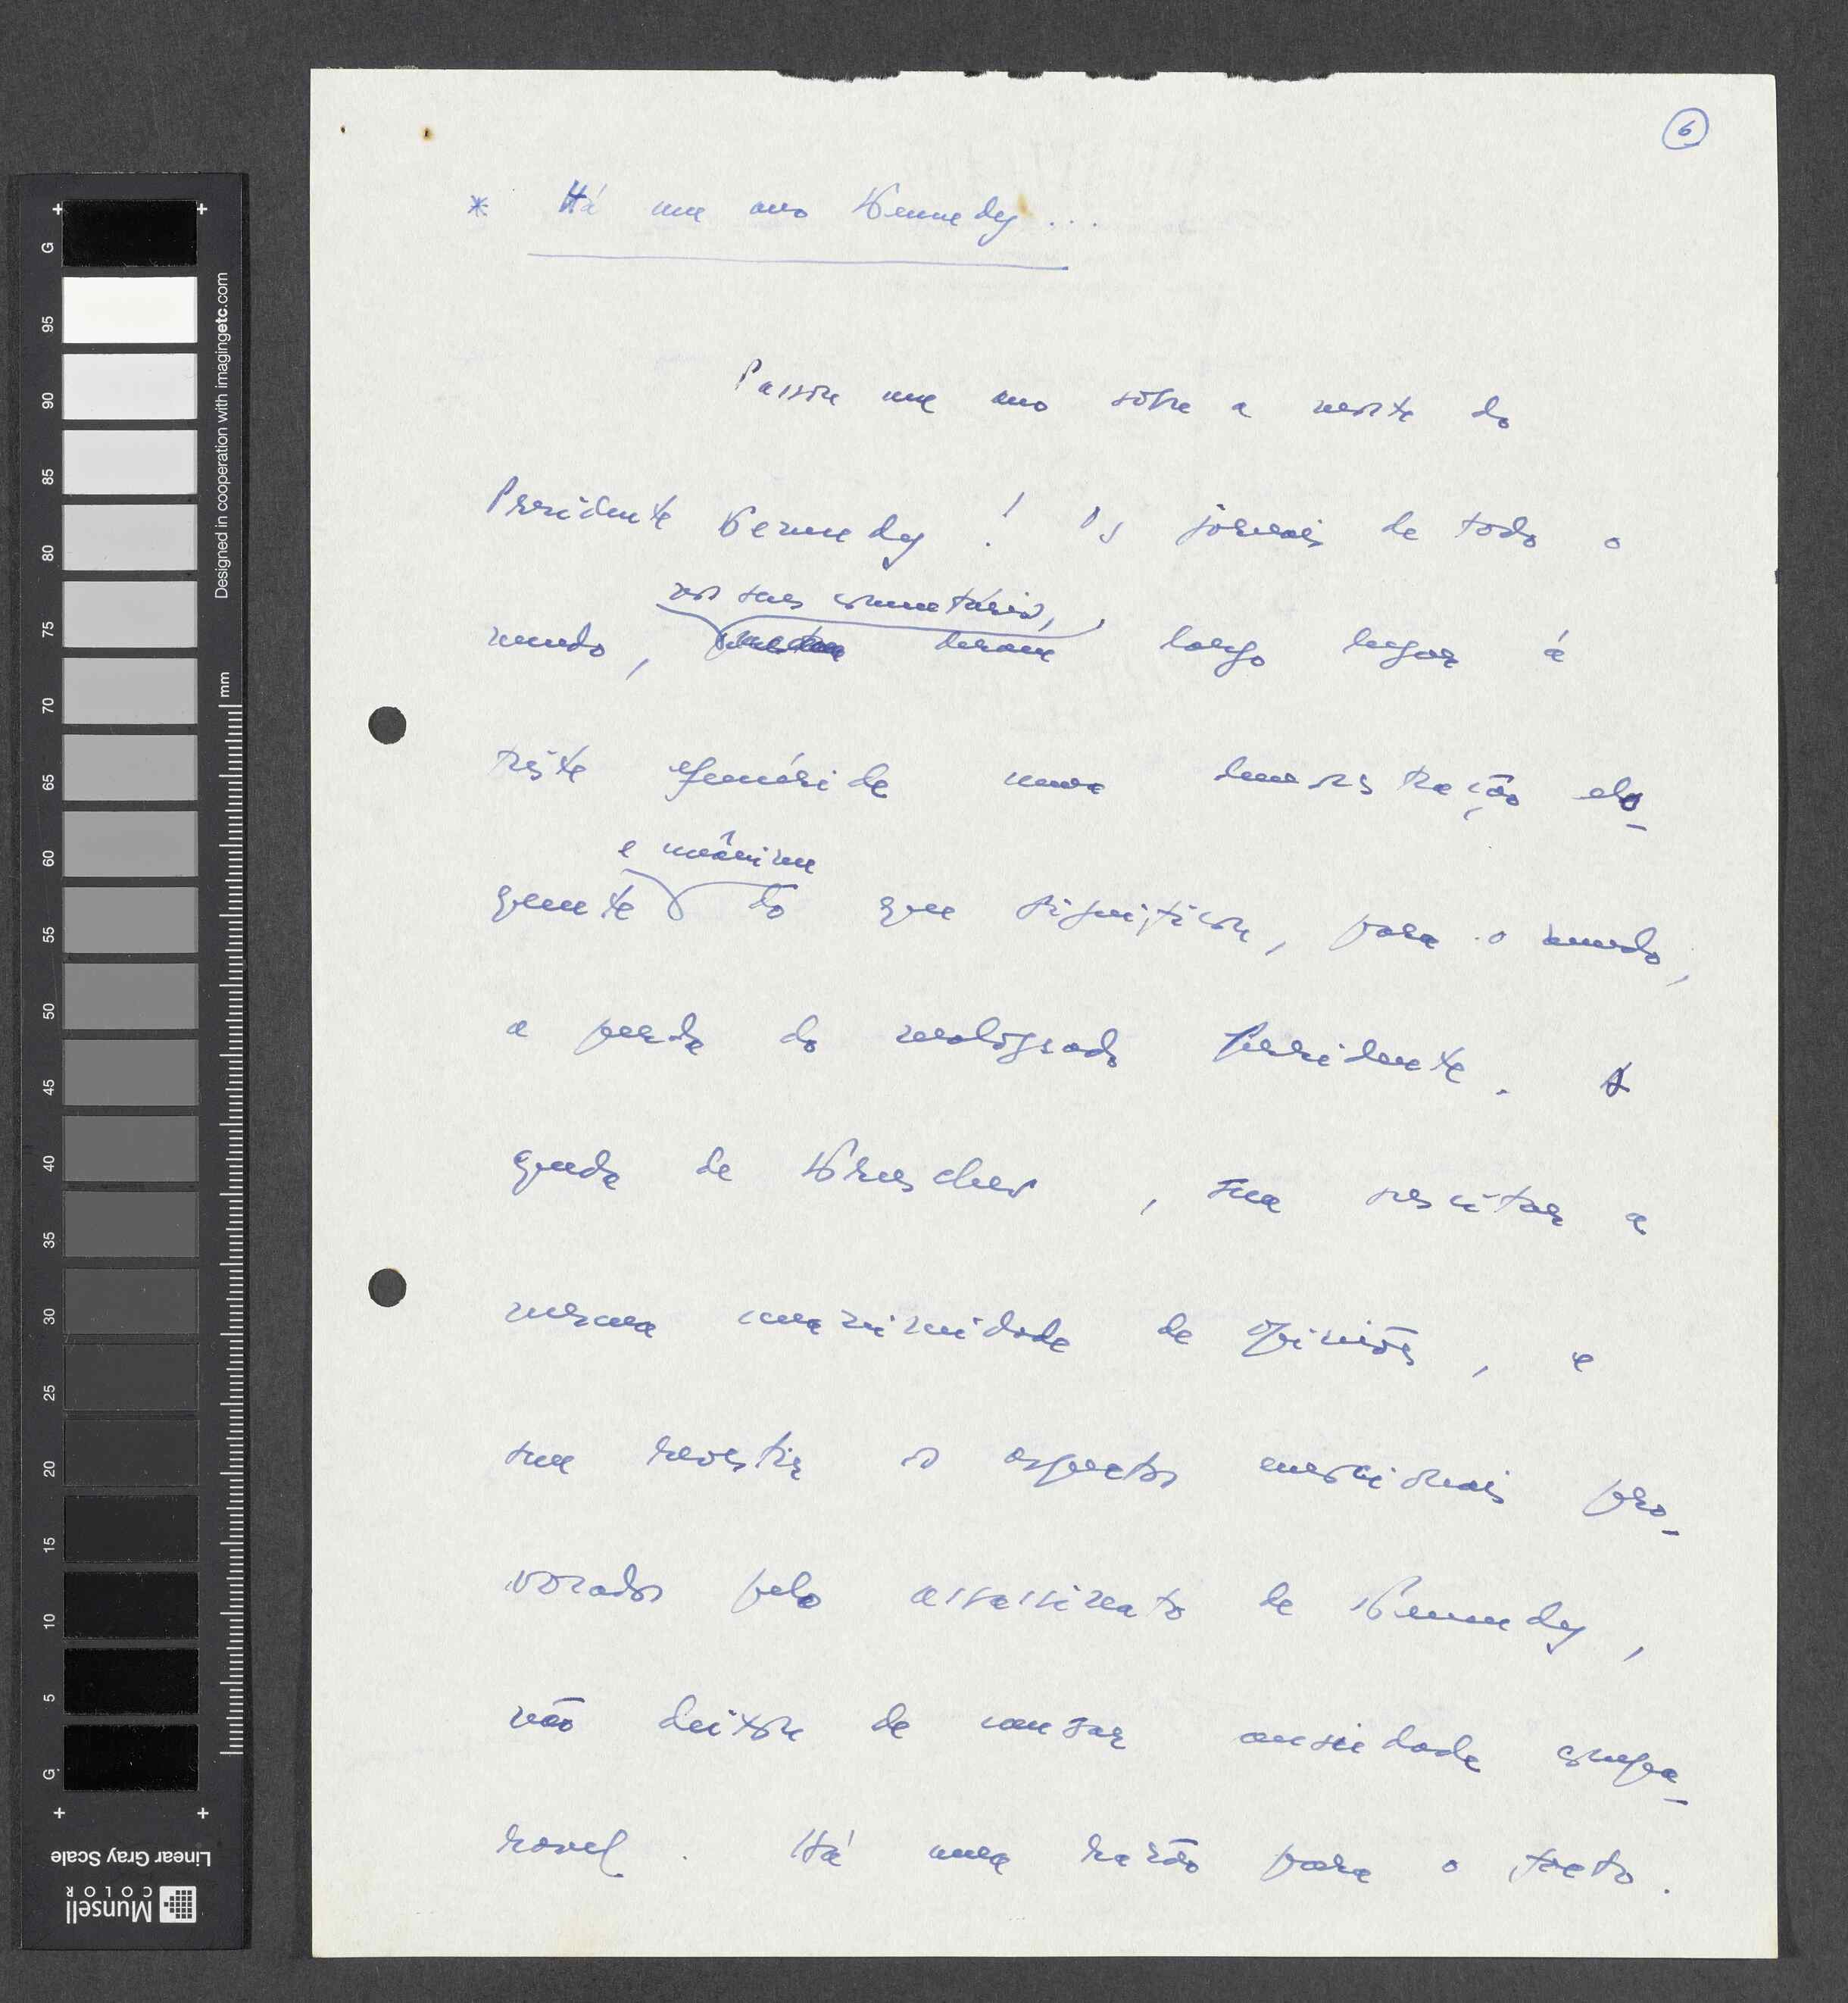 6
* Há um ano Kennedy...
Passou um ano sôbre a morte do
Presidente Kennedy! Os jornais de todo o
nos seus comentários,
mundo, deram largo lugar à
triste efeméride numa demonstração elo-
e unânime
quente do que significou, para o mundo,
a perda do malogrado Presidente. A
queda de Kruschev, sem suscitar a
mesma unanimidade de opiniões, e
sem revestir os aspectos emocionais pro-
vocados pelo assassinato de Kennedy,
não deixou de causar ansiedade equipa-
rável. Há uma razão para o facto.
Designed in cooperation with imagingetc.com
mm
G
95
90
85
80
75
70
65
60
55
50
45
40
35
30
25
20
15
10
5
G
Linear Gray Scale
Munsell
COLOR